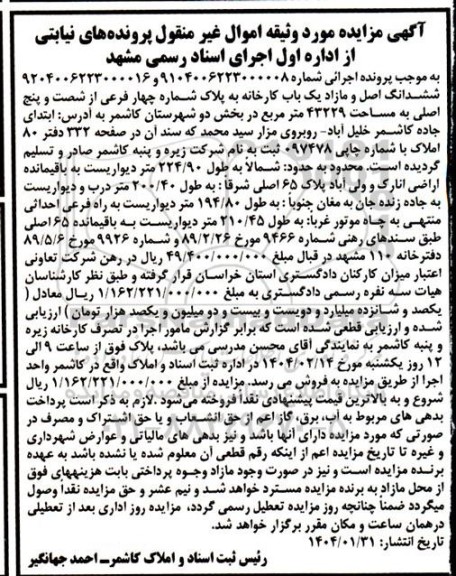 آگهی مزایده مورد وثیقه اموال غیر منقول پرونده‌های نیابتی
از اداره اول اجرای اسناد رسمی مشهد
به موجب پرونده اجرائی شماره ۹۱۰۴۰۰۶۲۲۳۰۰۰۰۰۸ و ۹۲۰۴۰۰۶۲۲۳۰۰۰۰۱۶
ششدانگ اصل و مازاد یک باب کارخانه به پلاک شماره چهار فرعی از شصت و پنج
اصلی به مساحت ۴۳۲۲۹ متر مربع در بخش دو شهرستان کاشمر به آدرس: ابتدای
جاده کاشمر خلیل آباد- روبروی مزار سید محمد که سند آن در صفحه ۳۳۲ دفتر ۸۰
املاک با شماره چاپی ۰۹۷۴۷۸ ثبت به نام شرکت زیره و پنبه کاشمر صادر و تسلیم
گردیده است. محدود به حدود: شمالاً به طول ۲۲۴/۹۰ متر دیواریست به باقیمانده
اراضی انارک و ولی آباد پلاک ۶۵ اصلی شرقاً : به طول ۲۰۰/۴۰ متر درب و دیواریست
به جاده زنده جان به مغان جنوباً : به طول ۱۹۴/۸۰ متر دیواریست به راه فرعی احداثی
منتهی به چاه موتور غرباً: به طول ۲۱۰/۴۵ متر دیواریست به باقیمانده ۶۵ اصلی
طبق سندهای رهنی شماره ۹۴۶۶ مورخ ۸۹/۲/۲۶ و شماره ۹۹۲۶ مورخ ۸۹/۵/۶
دفترخانه ۱۱۰ مشهد در قبال مبلغ ۴۹/۴۰۰/۰۰۰/۰۰۰ ریال در رهن شرکت تعاونی
اعتبار میزان کارکنان دادگستری استان خراسان قرار گرفته و طبق نظر کارشناسان
هیات سه نفره رسمی دادگستری به مبلغ ۱/۱۶۲/۲۲۱/۰۰۰/۰۰۰ ریال معادل (
یکصد و شانزده میلیارد و دویست و بیست و دو میلیون و یکصد هزار تومان ) ارزیابی
شده و ارزیابی قطعی شده است که برابر گزارش مامور اجرا در تصرف کارخانه زیره
و پنبه کاشمر به نمایندگی آقای محسن مدرسی می باشد، پلاک فوق از ساعت ۹ الی
۱۲ روز یکشنبه مورخ ۱۴۰۴/۰۲/۱۴ در اداره ثبت اسناد و املاک واقع در کاشمر واحد
اجرا از طریق مزایده به فروش می رسد. مزایده از مبلغ ۱/۱۶۲/۲۲۱/۰۰۰/۰۰۰ ریال
شروع و به بالاترین قیمت پیشنهادی نقداً فروخته می‌شود. لازم به ذکر است پرداخت
بدهی های مربوط به آب، برق، گاز اعم از حق انشعاب و یا حق اشتراک و مصرف در
صورتی که مورد مزایده دارای آنها باشد و نیز بدهی های مالیاتی و عوارض شهرداری
و غیره تا تاریخ مزایده اعم از اینکه رقم قطعی آن معلوم شده یا نشده باشد به عهده
برنده مزایده است و نیز در صورت وجود مازاد وجوه پرداختی بابت هزینه‌های فوق
از محل مازاد به برنده مزایده مسترد خواهد شد و نیم عشر و حق مزایده نقداً وصول
میگردد ضمناً چنانچه روز مزایده تعطیل رسمی گردد، مزایده روز اداری بعد از تعطیلی
درهمان ساعت و مکان مقرر برگزار خواهد شد.
تاریخ انتشار: ۱۴۰۴/۰۱/۳۱
رئیس ثبت اسناد و املاک کاشمر- احمد جهانگیر